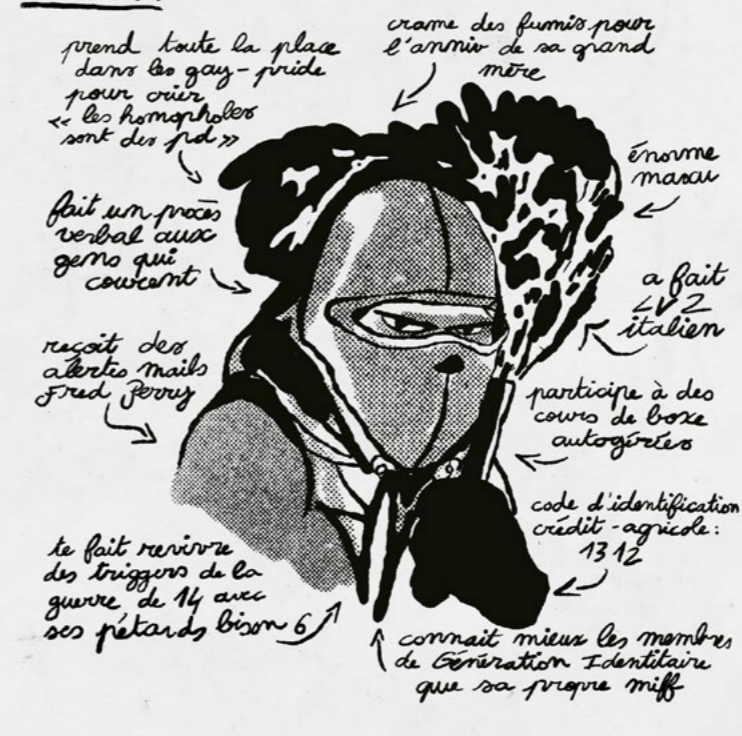 prend toute la place
dans les gay-pride
pour crier
<< les homophobes
sont des pd >>
crame des fumis pour
l'anniv de sa grand
mère
énorme
mascu
fait un procès
verbal aux
gens qui
courent
a fait
LV 2
italien
reçoit des
alertes mails
Fred Perry
participe à des
cours de boxe
autogérées
code d'identification
crédit-agricole :
1312
te fait revivre
des triggers de la
guerre de 14 avec
ses pétards bison 6
connait mieux les membres
de Génération Identitaire
que sa propre miff